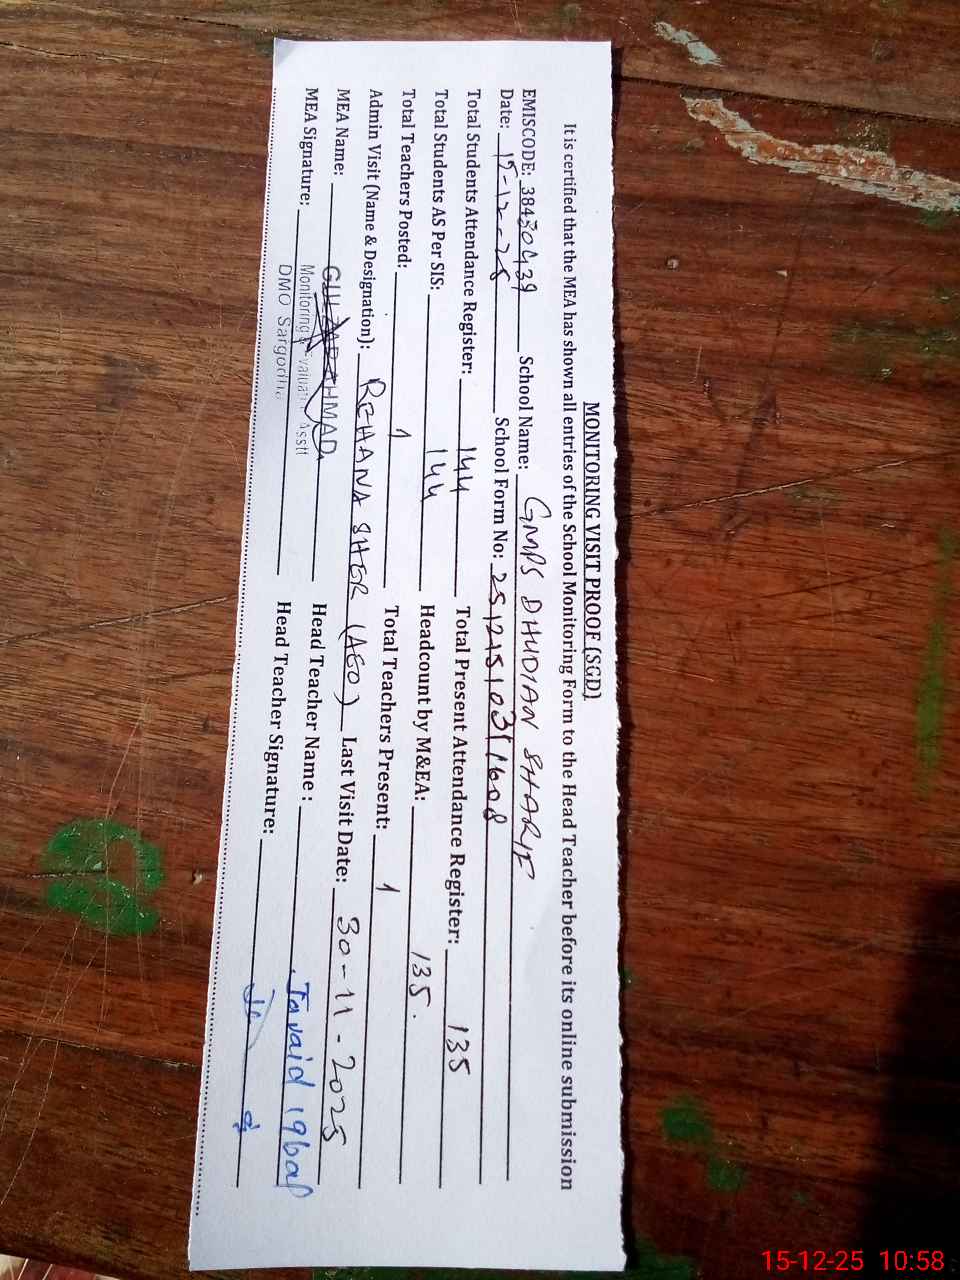 MONITORING VISIT PROOF (SGD)
It is certified that the MEA has shown all entries of the School Monitoring Form to the Head Teacher before its online submission
EMISCODE: 38430439 School Name: GMPS DHUDIAN SHARIF
Date: 15-12-25 School Form No: 25121510311608
Total Students Attendance Register: 144 Total Present Attendance Register: 135
Total Students AS Per SIS: 144 Headcount by M&EA: 135.
Total Teachers Posted: 1 Total Teachers Present: 1
Admin Visit (Name & Designation): REHANA SHER (AEO) Last Visit Date: 30-11-2025
MEA Name: GULZAR AHMAD Head Teacher Name : Javaid iqbal
Monitoring & Evaluation Asstt
MEA Signature: DMO Sargodha Head Teacher Signature:
15-12-25 10:58